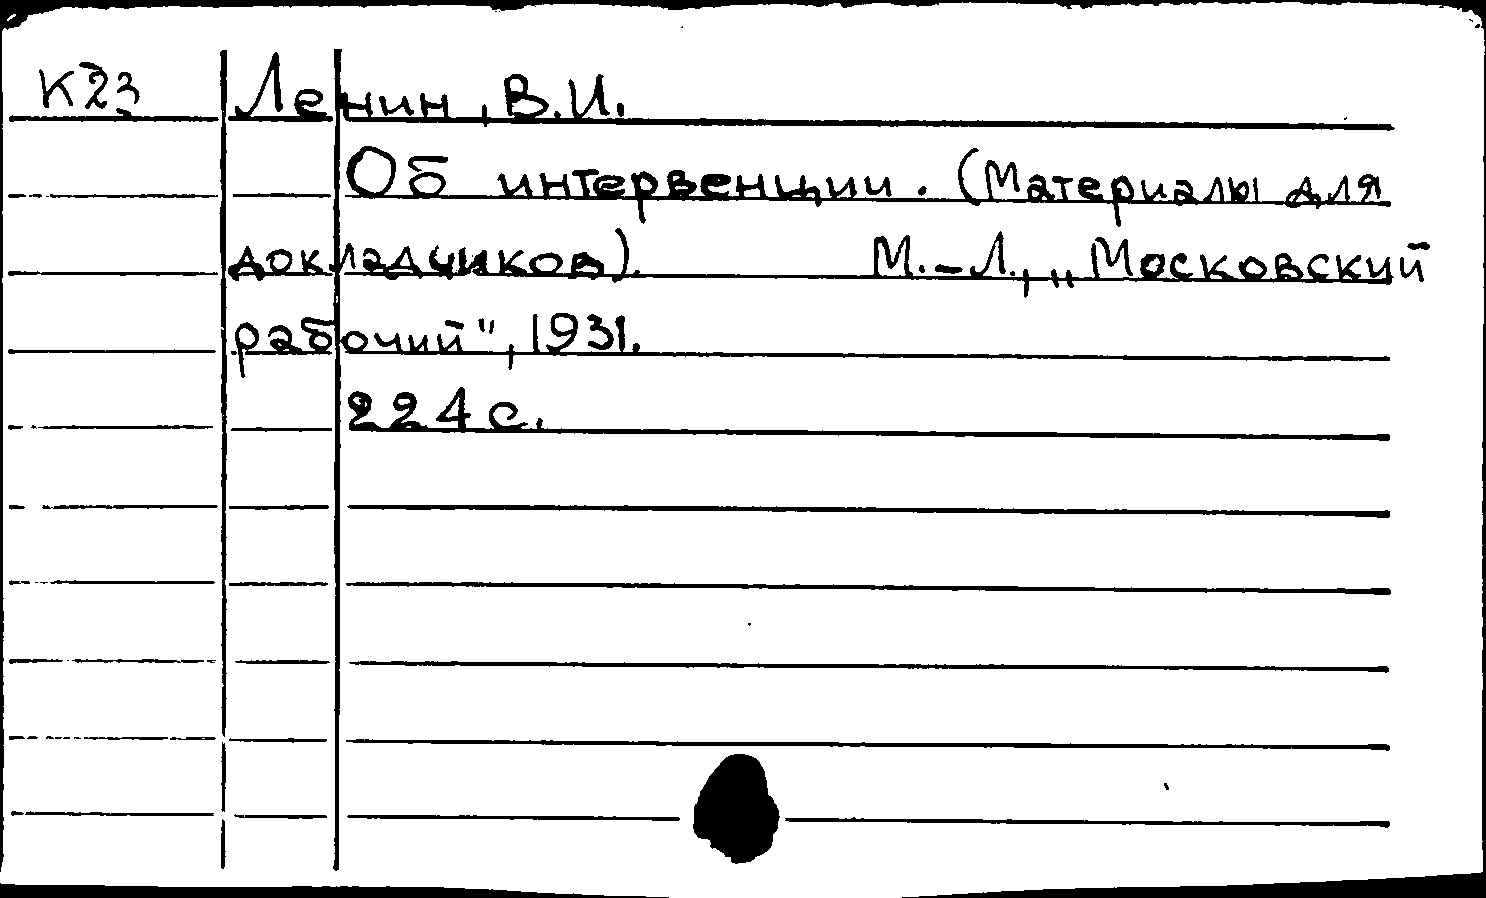 К23 Ленин, В.И.
Об интервенции. (Материалы для
докладчиков). М.-Л., „Московский
рабочий", 1931.
224 с.